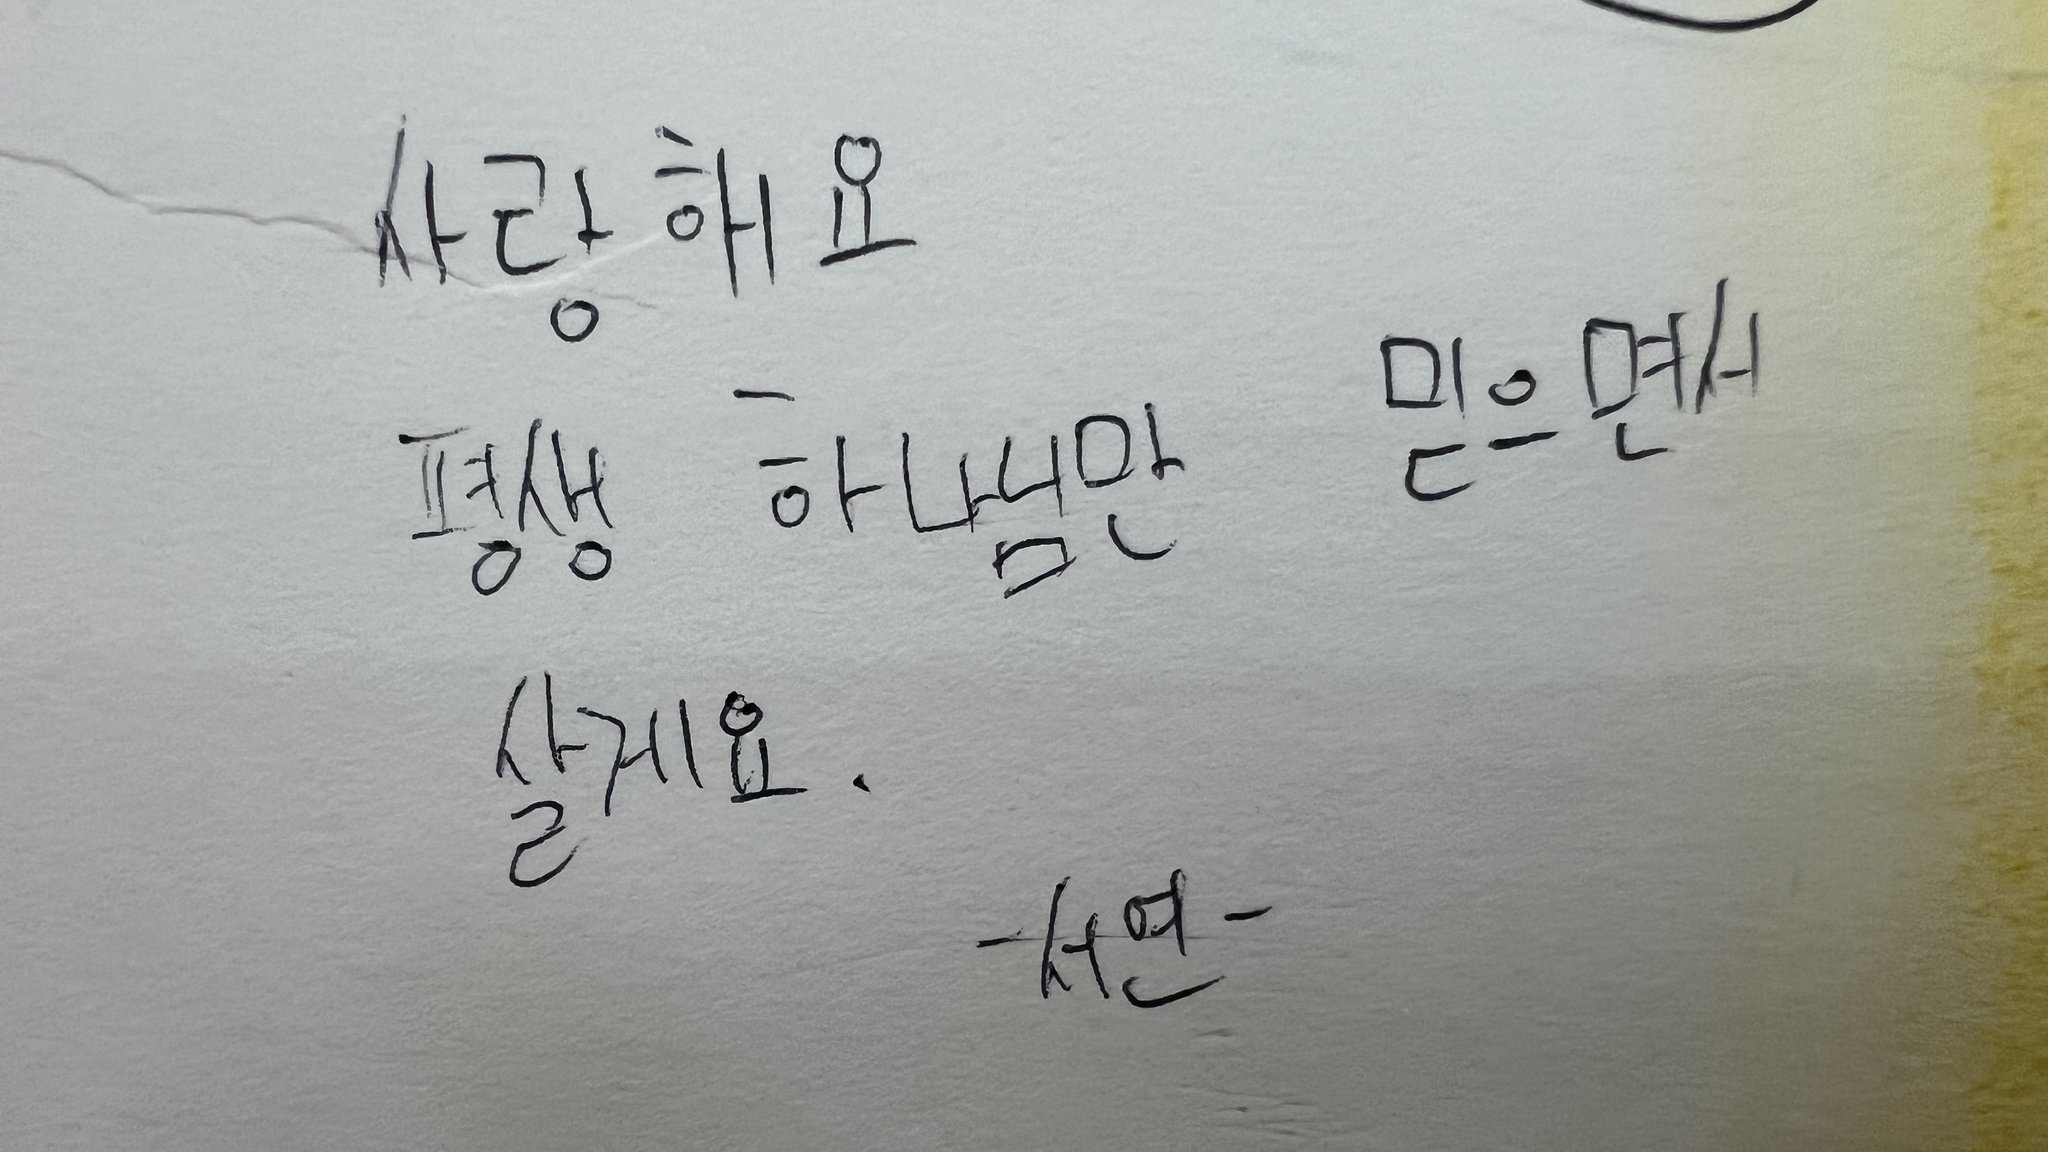 사랑해요
평생 하나님만 믿으면서
살게요.
-서연-